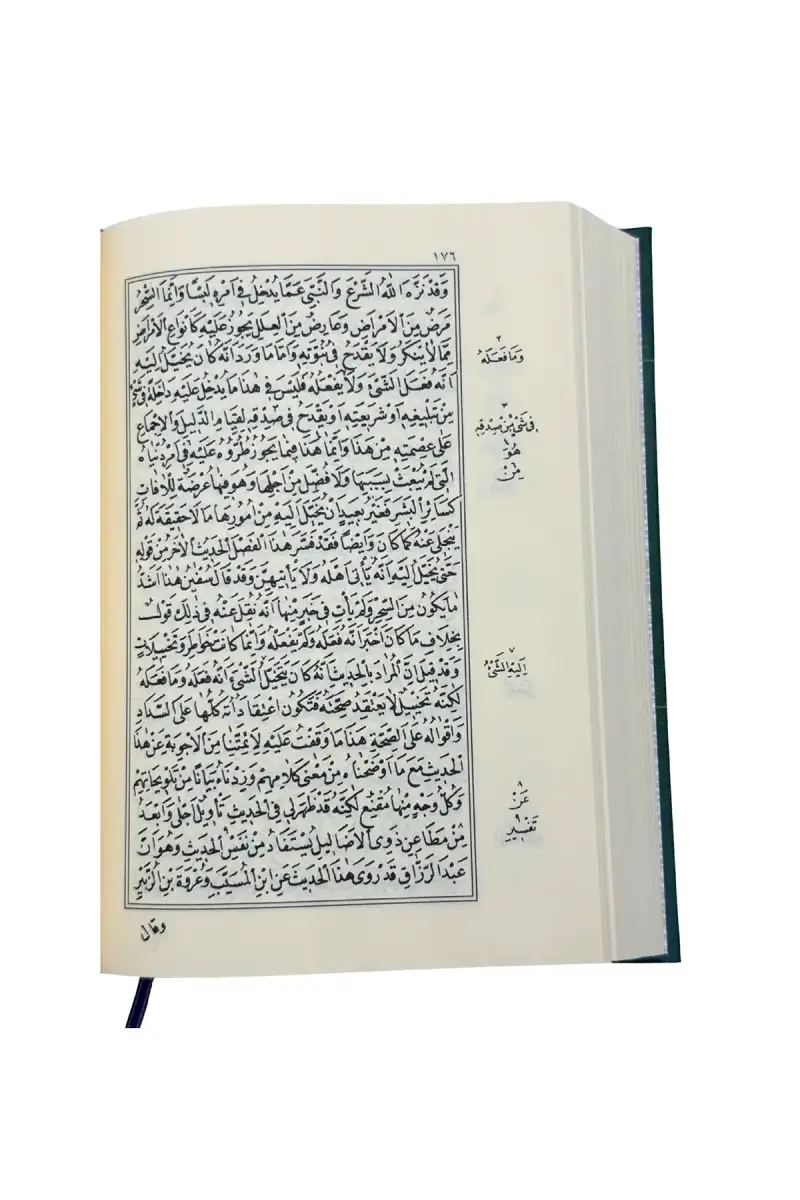 ١٧٦
وَقَدْ نَزَّهَ اللّٰهُ الشَّرْعَ وَالنَّبِيَّ عَمَّا يُدْخِلُ فِي اَمْرِهِ لَبْسًا وَاِنَّمَا السِّحْرُ
مَرَضٌ مِنَ الْاَمْرَاضِ وَعَارِضٌ مِنَ الْعِلَلِ يَجُوزُ عَلَيْهِ كَاَنْوَاعِ الْاَمْرَاضِ
مِمَّا لَا يُنْكَرُ وَلَا يَقْدَحُ فِي نُبُوَّتِهِ وَاَمَّا مَا وَرَدَ اَنَّهُ كَانَ يُخَيَّلُ اِلَيْهِ
اَنَّهُ فَعَلَ الشَّيْءَ وَلَا يَفْعَلُهُ فَلَيْسَ فِي هٰذَا مَا يُدْخِلُ عَلَيْهِ دَاخِلَةً فِي شَيْءٍ
مِنْ تَبْلِيغِهِ اَوْ شَرِيعَتِهِ اَوْ يَقْدَحُ فِي صِدْقِهِ لِقِيَامِ الدَّلِيلِ وَالْاِجْمَاعِ
عَلٰى عِصْمَتِهِ مِنْ هٰذَا وَاِنَّمَا هٰذَا فِيمَا يَجُوزُ طُرُوُّهُ عَلَيْهِ فِي اَمْرِ دُنْيَاهُ
الَّتِي لَمْ يُبْعَثْ بِسَبَبِهَا وَلَا فُضِّلَ مِنْ اَجْلِهَا وَهُوَ فِيهَا عُرْضَةٌ لِلْاٰفَاتِ
كَسَائِرِ الْبَشَرِ فَغَيْرُ بَعِيدٍ اَنْ يُخَيَّلَ اِلَيْهِ مِنْ اُمُورِهَا مَا لَا حَقِيقَةَ لَهُ ثُمَّ
يَنْجَلِي عَنْهُ كَمَا كَانَ وَاَيْضًا فَقَدْ فَسَّرَ هٰذَا الْفَصْلَ الْحَدِيثُ الْاٰخَرُ مِنْ قَوْلِهِ
حَتّٰى يُخَيَّلَ اِلَيْهِ اَنَّهُ يَأْتِي اَهْلَهُ وَلَا يَأْتِيهِنَّ وَقَدْ قَالَ سُفْيٰنُ هٰذَا اَشَدُّ
مَا يَكُونُ مِنَ السِّحْرِ وَلَمْ يَأْتِ فِي خَبَرٍ مِنْهَا اَنَّهُ نُقِلَ عَنْهُ فِي ذٰلِكَ قَوْلٌ
بِخِلَافِ مَا كَانَ اَخْبَرَ اَنَّهُ فَعَلَهُ وَلَمْ يَفْعَلْهُ وَاِنَّمَا كَانَتْ خَوَاطِرَ وَتَخْيِيلَاتٍ
وَقَدْ قِيلَ اِنَّ الْمُرَادَ بِالْحَدِيثِ اَنَّهُ كَانَ يَتَخَيَّلُ الشَّيْءَ اَنَّهُ فَعَلَهُ وَمَا فَعَلَهُ
لٰكِنَّهُ تَخْيِيلٌ لَا يَعْتَقِدُ صِحَّتَهُ فَتَكُونُ اعْتِقَادَاتُهُ كُلُّهَا عَلَى السَّدَادِ
وَاَقْوَالُهُ عَلَى الصِّحَّةِ هٰذَا مَا وَقَفْتُ عَلَيْهِ لِاَئِمَّتِنَا مِنَ الْاَجْوِبَةِ عَنْ هٰذَا
الْحَدِيثِ مَعَ مَا اَوْضَحْنَاهُ مِنْ مَعْنٰى كَلَامِهِمْ وَزِدْنَاهُ بَيَانًا مِنْ تَلْوِيحَاتِهِمْ
وَكُلُّ وَجْهٍ مِنْهَا مُقْنِعٌ لٰكِنَّهُ قَدْ ظَهَرَ لِي فِي الْحَدِيثِ تَأْوِيلٌ اَجْلٰى وَاَبْعَدُ
مِنْ مَطَاعِنِ ذَوِي الْاَضَالِيلِ يُسْتَفَادُ مِنْ نَفْسِ الْحَدِيثِ وَهُوَ اَنَّ
عَبْدَ الرَّزَّاقِ قَدْ رَوٰى هٰذَا الْحَدِيثَ عَنِ ابْنِ الْمُسَيَّبِ وَعُرْوَةَ بْنِ الزُّبَيْرِ
وَقَالَ
٢
وَمَا فَعَلَهُ
٣
فِي شَيْءٍ مِنْ صِدْقِهِ
هُوَ
مِنْ
٧
اِلَيْهِ الشَّيْءُ
٨
عَنْ
٩
تَفْسِيرِ